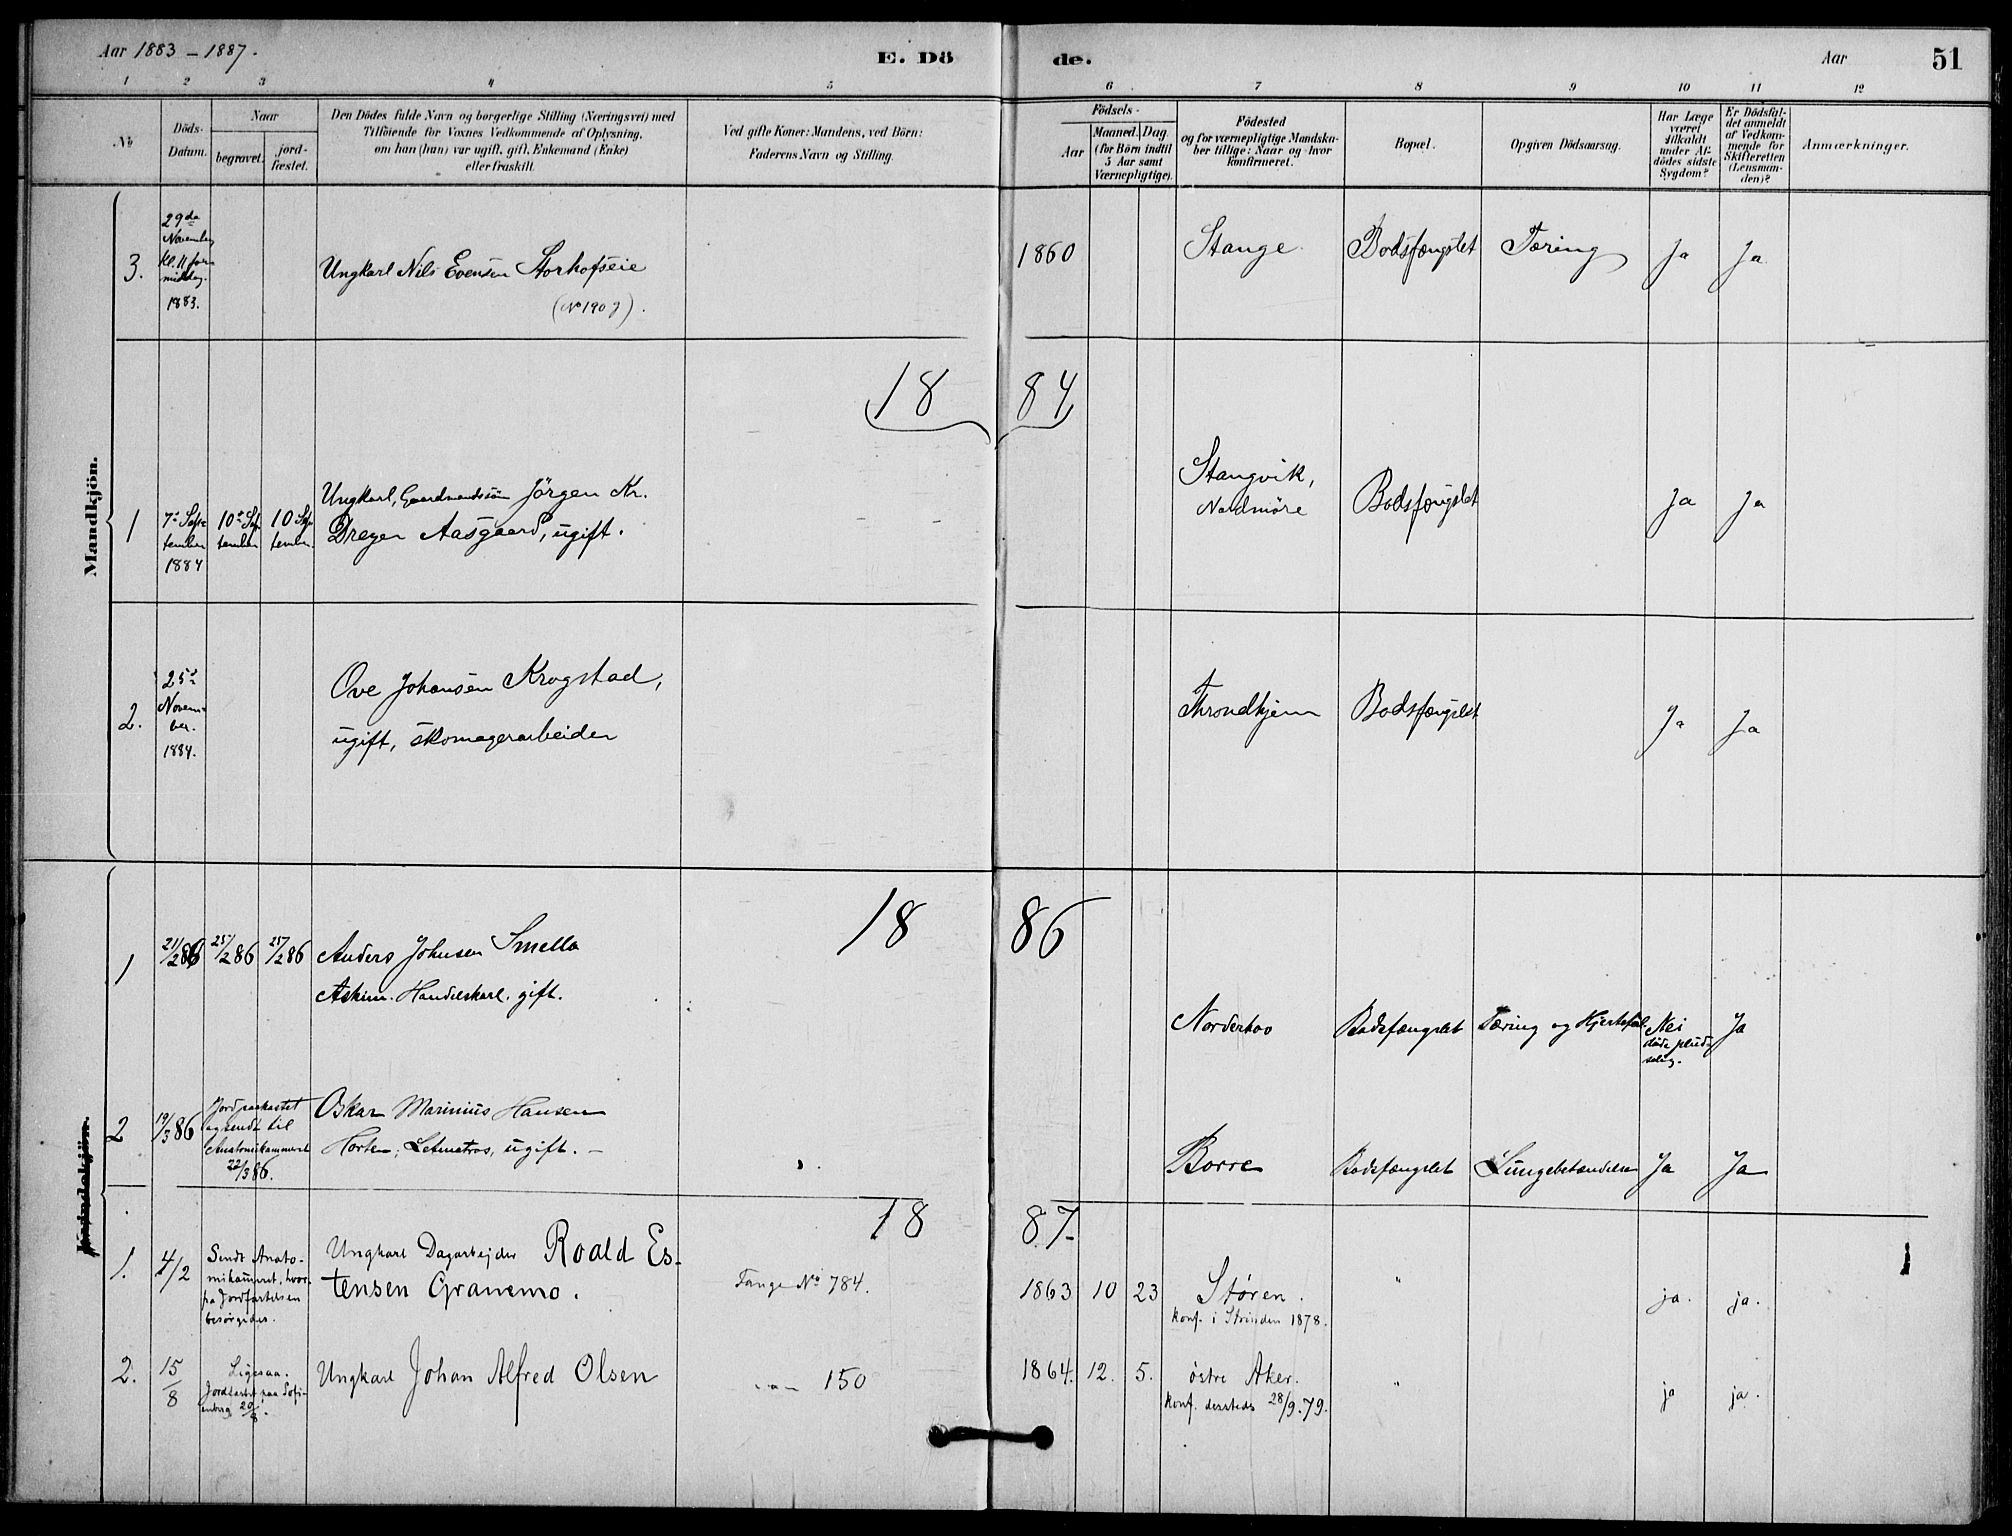 Aar 1883 – 1887.
E. Dö
de.
Aar
51
1 2 3 4 5 6 7 8 9 10 11 12
No
Döds-Datum.
Naar
begravet.
jord-fæstet.
Den Dödes fulde Navn og borgerlige Stilling (Næringsvei) med
Tilföiende for Voxnes Vedkommende af Oplysning,
om han (hun) var ugift, gift, Enkemand (Enke)
eller fraskilt.
Ved gifte Koner: Mandens, ved Börn:
Faderens Navn og Stilling.
Födsels-
Aar
Maaned.
Dag.
(for Börn indtil
5 Aar samt
Værnepligtige).
Födested
og for værnepligtige Mandska-
ber tillige: Naar og hvor
konfirmeret.
Bopæl.
Opgiven Dödsaarsag.
Har Læge
været
tilkaldt
under Af-
dödes sidste
Sygdom?
Er Dödsfal-
det anmeldt
af Vedkom-
mende for
Skifteretten
(Lensman-
den)?
Anmærkninger.
Mandkjön.
3.
29de
November
Kl. 11 for-
middag.
1883.
Ungkarl Nils Evensen Storhofseie
(No 190 )
1860
Stange
Bodsfængslet
Tæring
Ja
Ja
18
84
1
7de Sep-
tember
1884
10de Sep-
tember
10 Sep-
tember.
Ungkarl, Gaardmandssön Jörgen Kr.
Dreyer Aasgaard, ugift.
Stangvik,
Nordmöre
Bodsfængslet
Ja
Ja
2.
25de
Novem-
ber.
1884.
Ove Johansen Krogstad,
ugift, skomagerarbeider
Throndhjem
Bodsfængslet
Ja
Ja
18
86
1
21/2 86
25/2 86
25/2 86
Anders Johnsen Smella
Askim. Handelskarl. gift.
Norderhov
Bodsfængslet
Tæring og Hjertefeil.
Nei
døde pluds-
selig.
Ja
Kvindekjön.
2
19/3 86
Jordpaakastet
og sendt til
Anatomikammeret
22/3 86.
Oskar Marinius Hansen
Horten; Letmatros, ugift. –
Borre
Bodsfængslet
Lungebetændelse
Ja
Ja
18
87.
1.
4/2
Sendt Anato-
mikamret, hvor-
pa Jordfæstelsen
besørgedes.
Ungkarl Dagarbejder Roald Es-
tensen Granemo.
Fange No 784.
1863
10
23
Støren.
konf. i Strinden 1878.
"
ja.
ja.
2.
15/8
Ligesaa.
Jordfæstet paa Sofi-
enberg 20/8.
Ungkarl Johan Alfred Olsen
150
1864.
12.
5.
østre Aker.
konf. dersteds 28/9.79.
"
ja
ja.